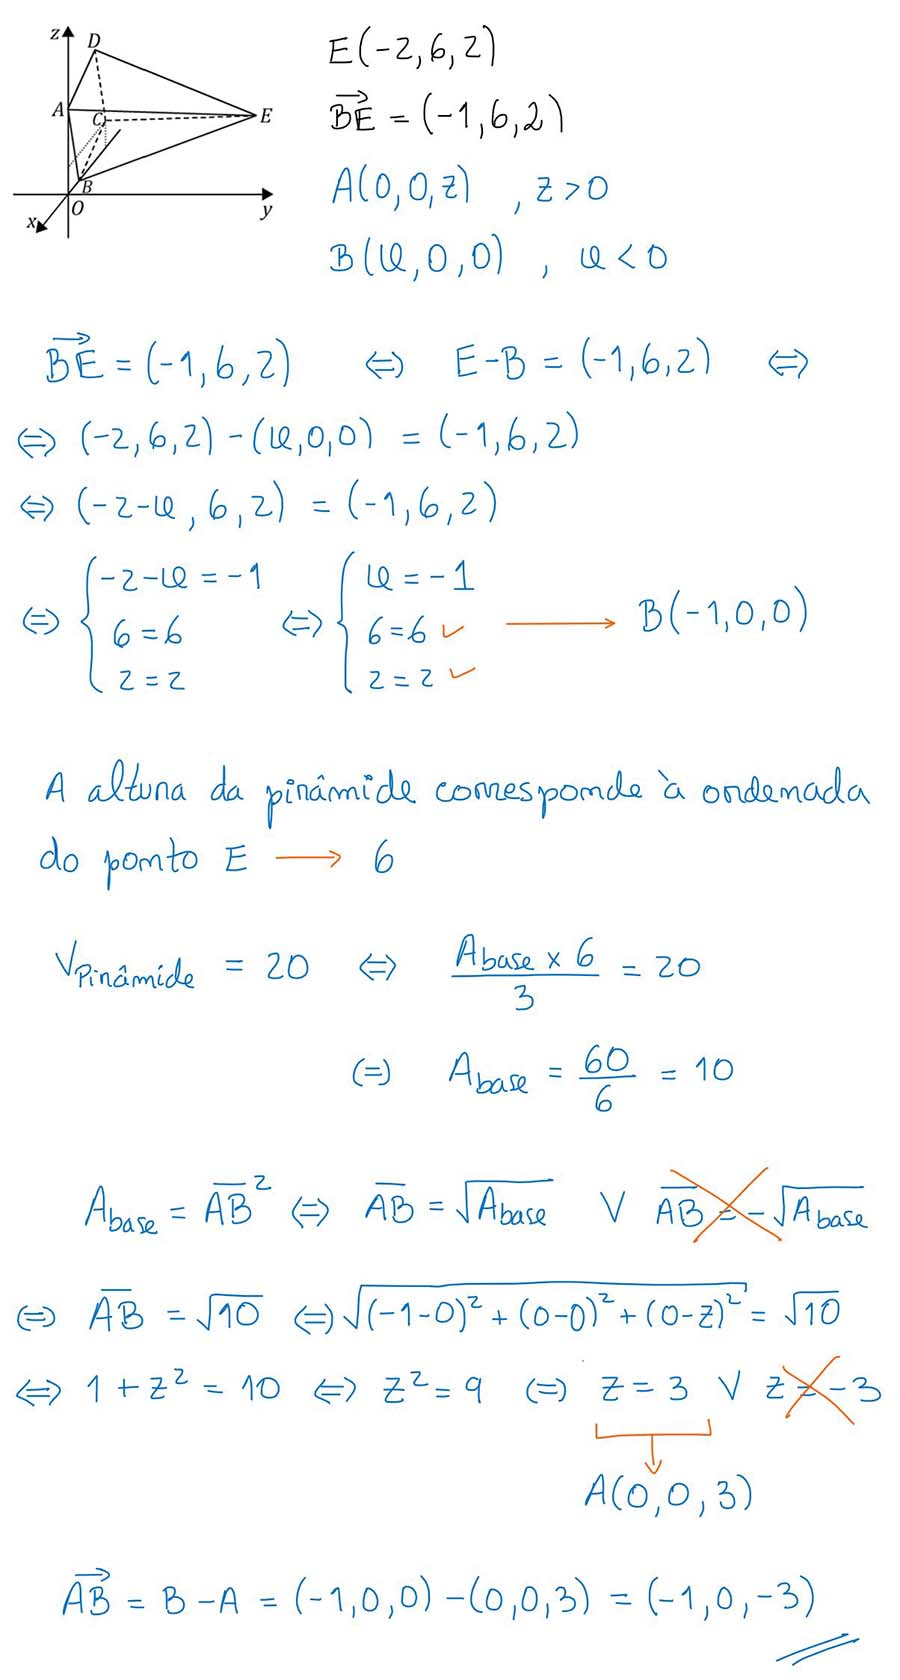 z
D
A
C
E
B
O
x
y
E(-2,6,2)
\overrightarrow{BE} = (-1,6,2)
A(0,0,z) , z>0
B(x,0,0) , x<0
\overrightarrow{BE} = (-1,6,2) ⇔ E-B = (-1,6,2) ⇔
⇔ (-2,6,2)-(x,0,0) = (-1,6,2)
⇔ (-2-x, 6, 2) = (-1,6,2)
⇔ { -2-x = -1 ⇔ { x = -1
6=6 6=6 ✓ ⟶ B(-1,0,0)
2=2 2=2 ✓
A altura da pirâmide corresponde à ordenada
do ponto E ⟶ 6
V_{Pirâmide} = 20 ⇔ \frac{A_{base} × 6}{3} = 20
(=) A_{base} = \frac{60}{6} = 10
A_{base} = \overline{AB}^2 ⇔ \overline{AB} = √A_{base} V \overline{AB} = -√A_{base}
(=) \overline{AB} = √10 ⇔ √((-1-0)^2 + (0-0)^2 + (0-z)^2) = √10
⇔ 1+z^2 = 10 ⇔ z^2 = 9 (=) z = 3 V z = -3
A(0,0,3)
\overrightarrow{AB} = B-A = (-1,0,0)-(0,0,3) = (-1,0,-3)